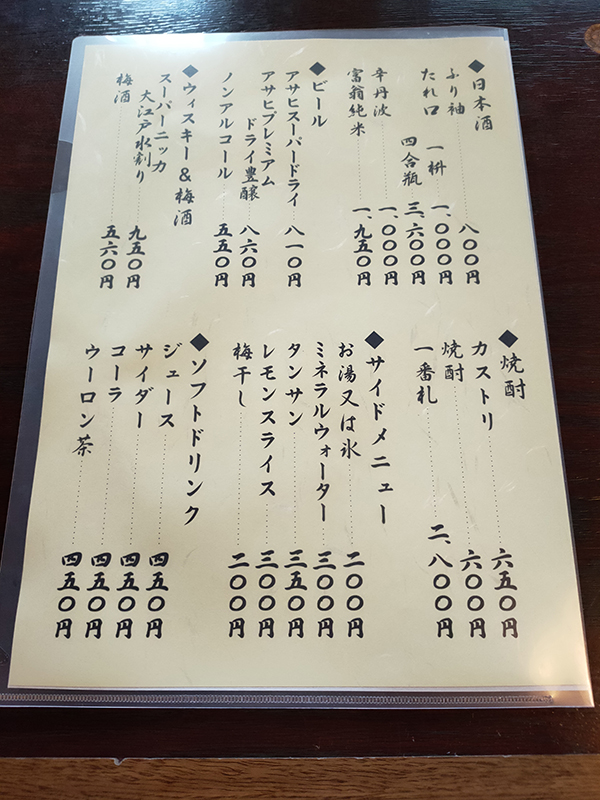 ◆日本酒
ふり袖 八〇〇円
たれ口 一枡 一、〇〇〇円
四合瓶 三、六〇〇円
辛丹波 一、〇〇〇円
富翁純米 一、九五〇円
◆ビール
アサヒスーパードライ 八一〇円
アサヒプレミアム
ドライ豊醸 八六〇円
ノンアルコール 五五〇円
◆ウィスキー&梅酒
スーパーニッカ
大江戸水割り 九五〇円
梅酒 五六〇円
◆焼酎
カストリ 六五〇円
焼酎 六〇〇円
一番札 二、八〇〇円
◆サイドメニュー
お湯又は氷 二〇〇円
ミネラルウォーター 三〇〇円
タンサン 三五〇円
レモンスライス 三〇〇円
梅干し 二〇〇円
◆ソフトドリンク
ジュース 四五〇円
サイダー 四五〇円
コーラ 四五〇円
ウーロン茶 四五〇円